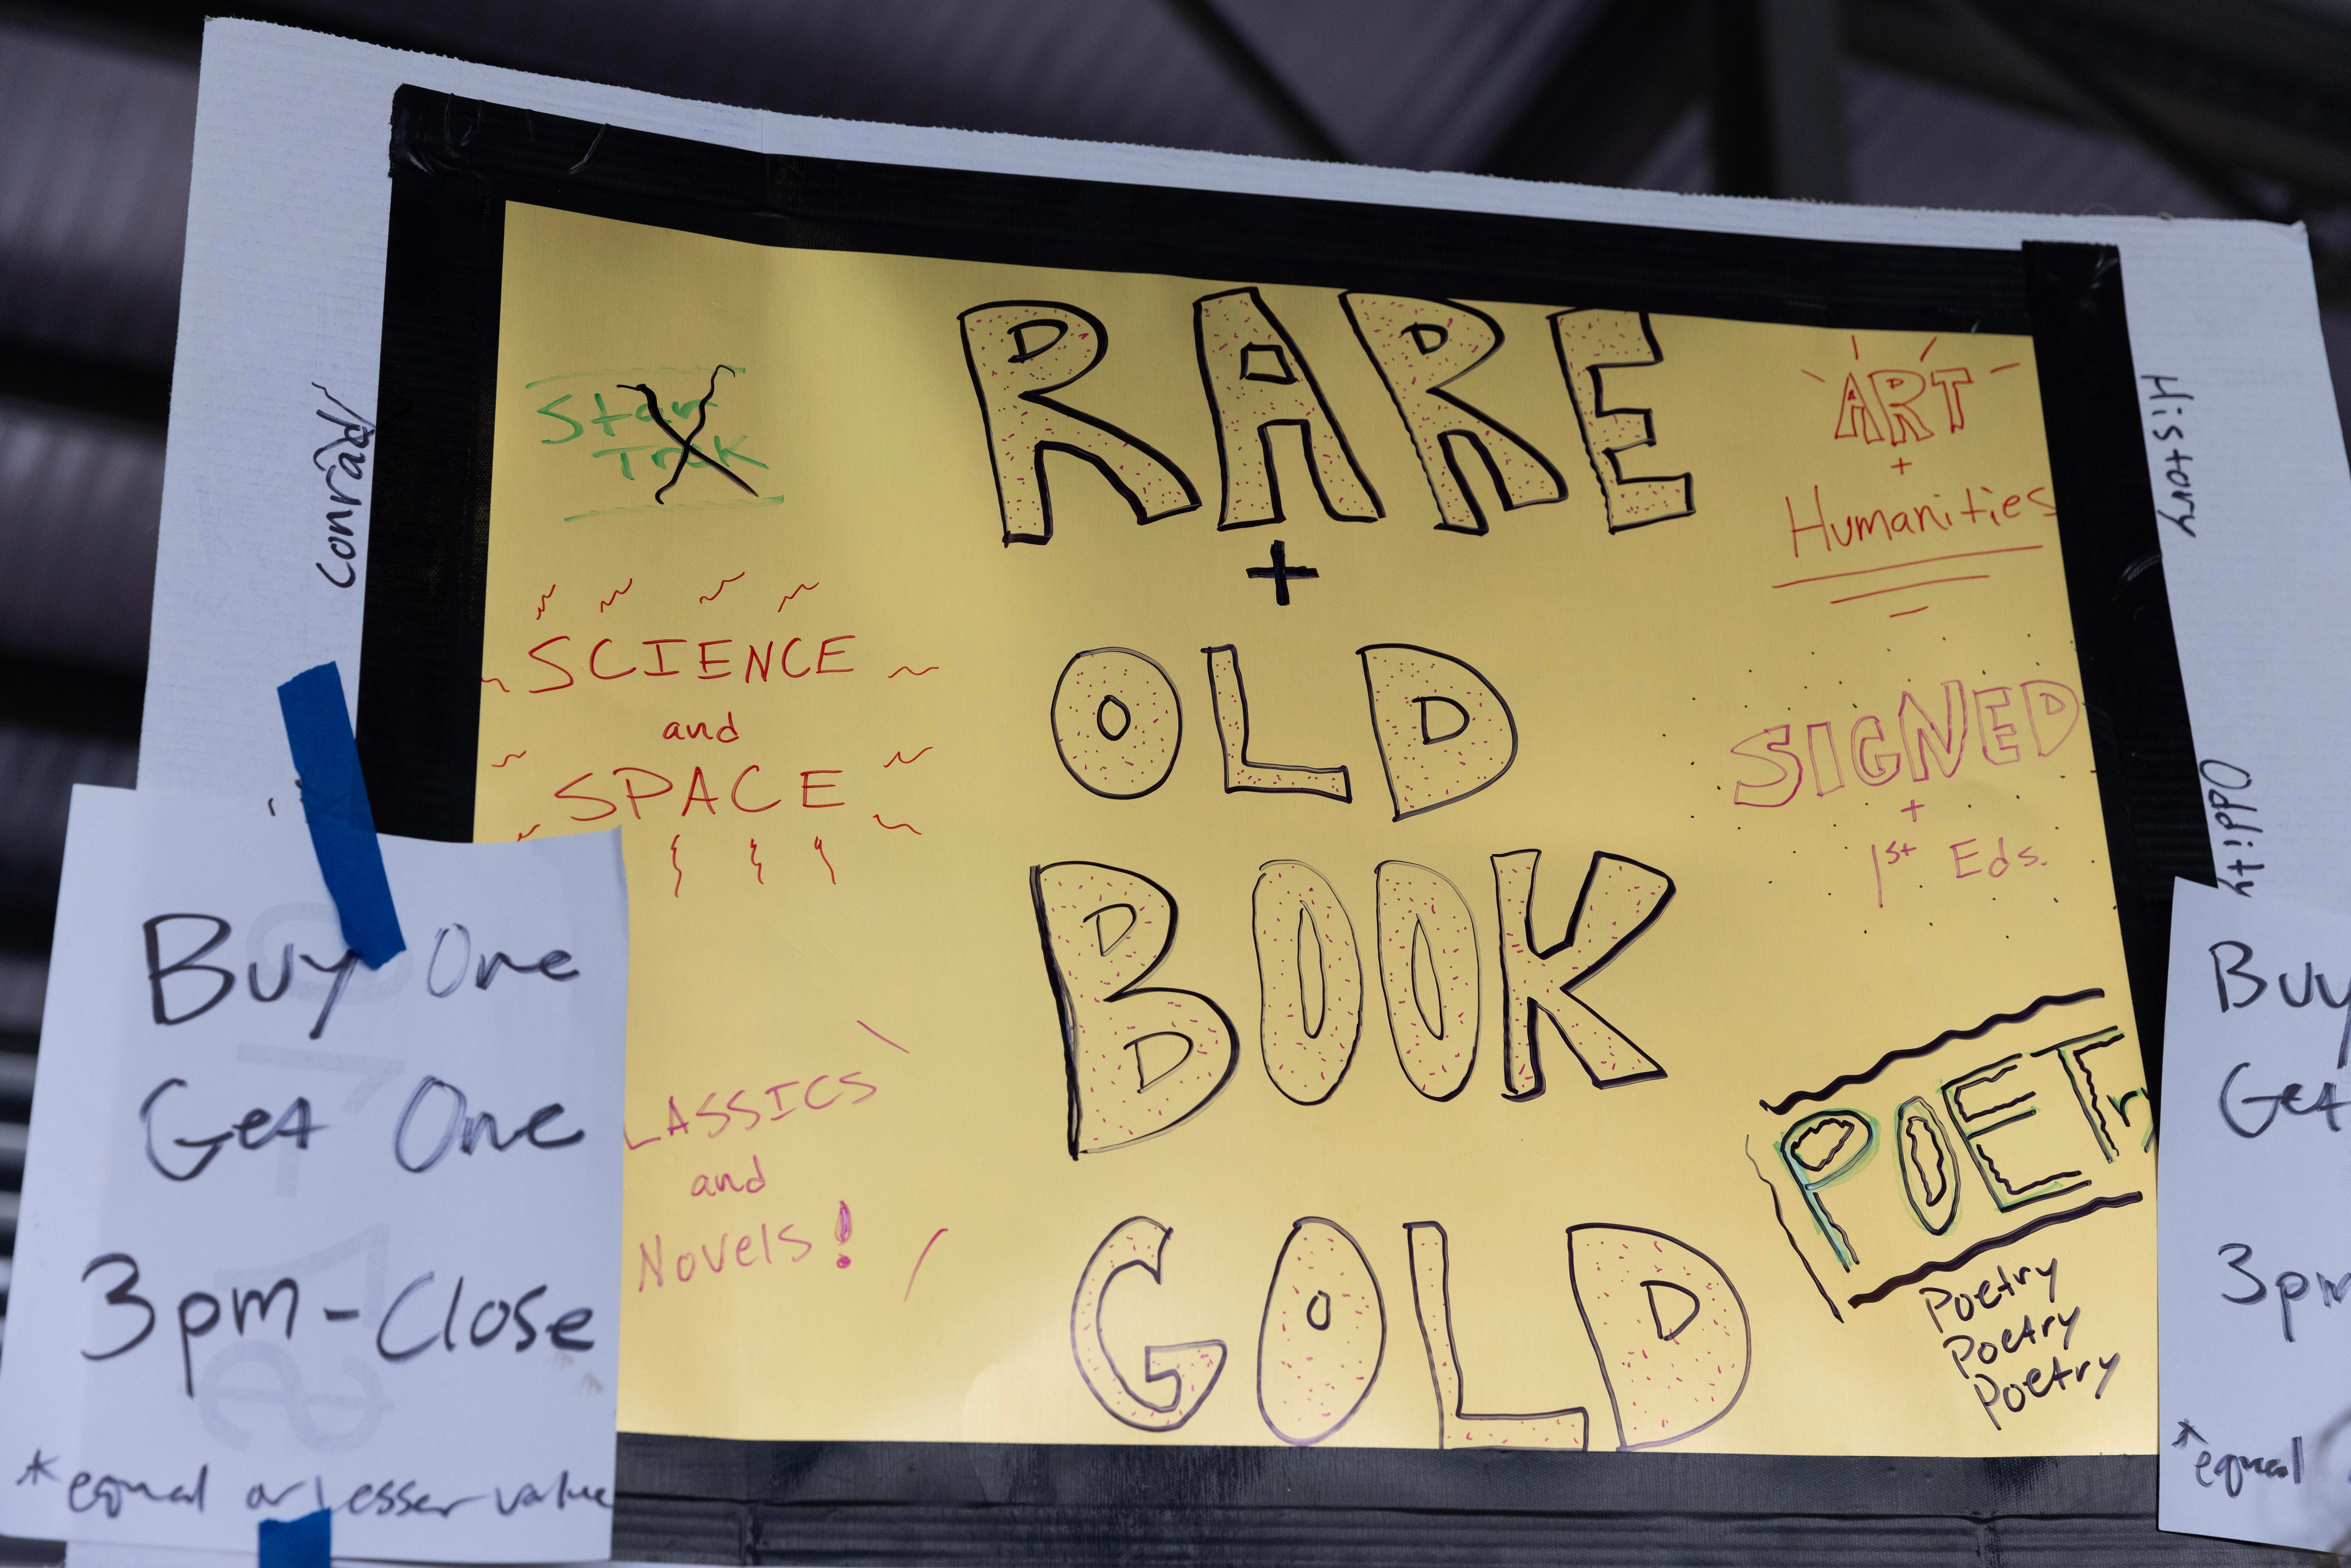 Conrad
Star
Trek
SCIENCE
and
SPACE
LASSICS
and
Novels!
RARE
+
OLD
BOOK
GOLD
ART
+
Humanities
SIGNED
+
1st Eds.
POETry
Poetry
Poetry
Poetry
History
Buy One
Get One
3pm-Close
*equal or lesser value
Buy
Get
3pm
*equal